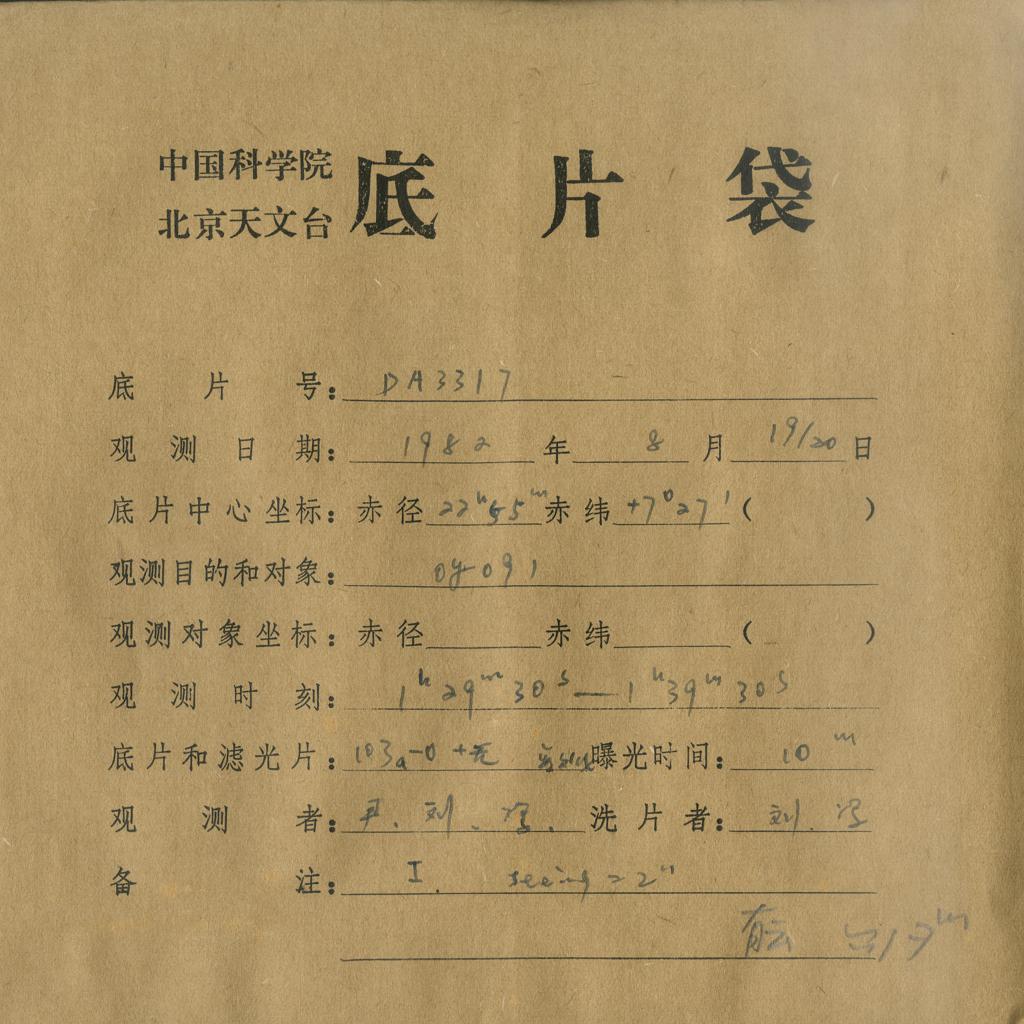 中国科学院
北京天文台
底片袋
底片号: DA3317
观测日期: 1982年 8月 19/20日
底片中心坐标: 赤径 22h55m 赤纬 +7°27′ ( )
观测目的和对象:
观测对象坐标: 赤径 赤纬 ( )
观测时刻: 1h29m30s—1h39m30s
底片和滤光片: 103a-O+无 曝光时间: 10m
观测者: 尹、刘、 洗片者: 刘、
备注: I. seeing 22"
有云